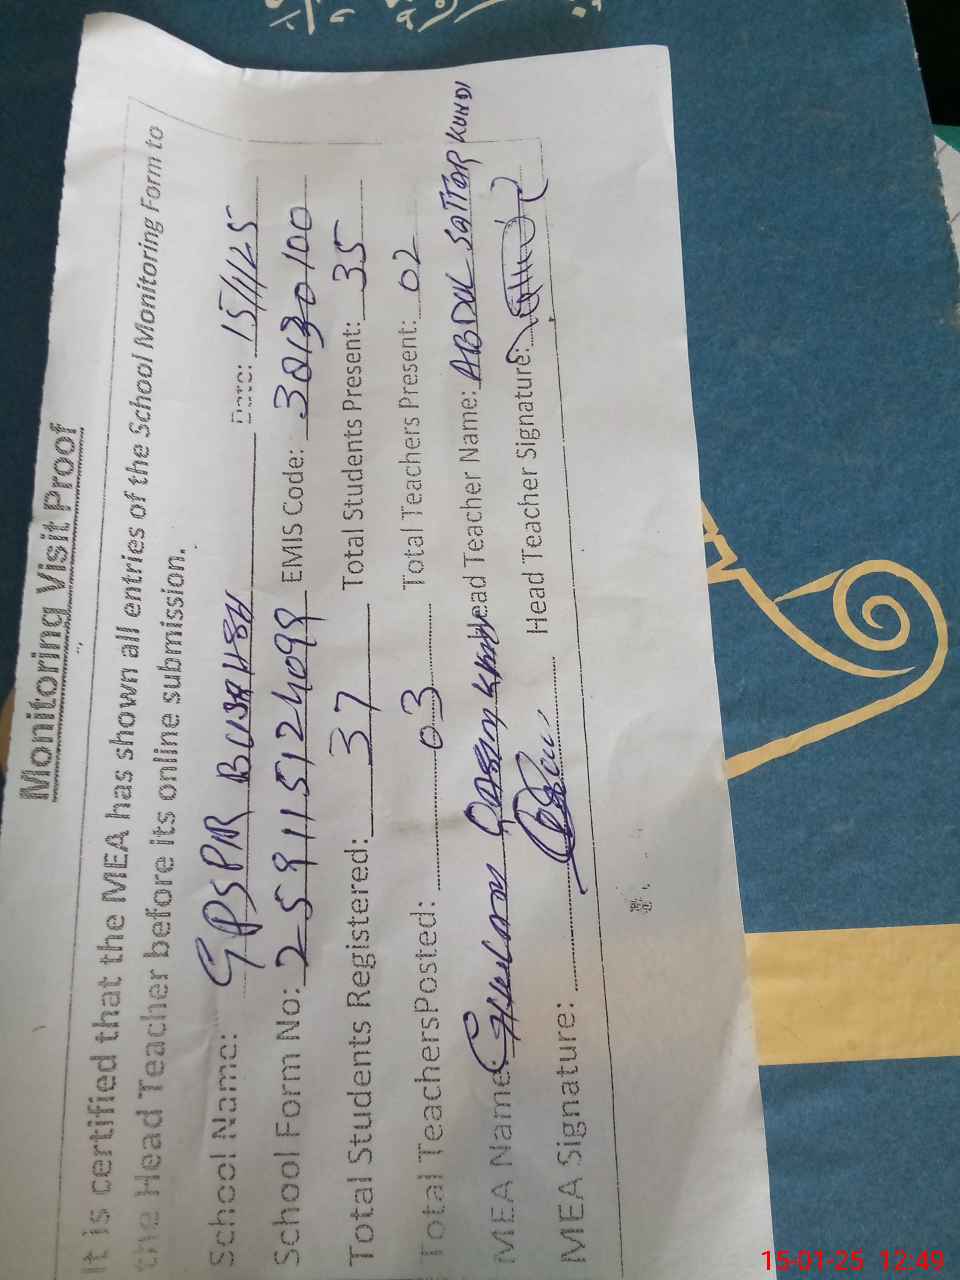 Monitoring Visit Proof
It is certified that the MEA has shown all entries of the School Monitoring Form to
the Head Teacher before its online submission.
School Name: GPS PIR Date: 15/1/25
School Form No: 259115124099 EMIS Code: 30130100
Total Students Registered: 37 Total Students Present: 35
Total TeachersPosted: 03 Total Teachers Present: 02
MEA Name: GHULAM QASIM Head Teacher Name: ABDUL SATTAR KUNDI
MEA Signature: Head Teacher Signature:
15-01-25 12:49